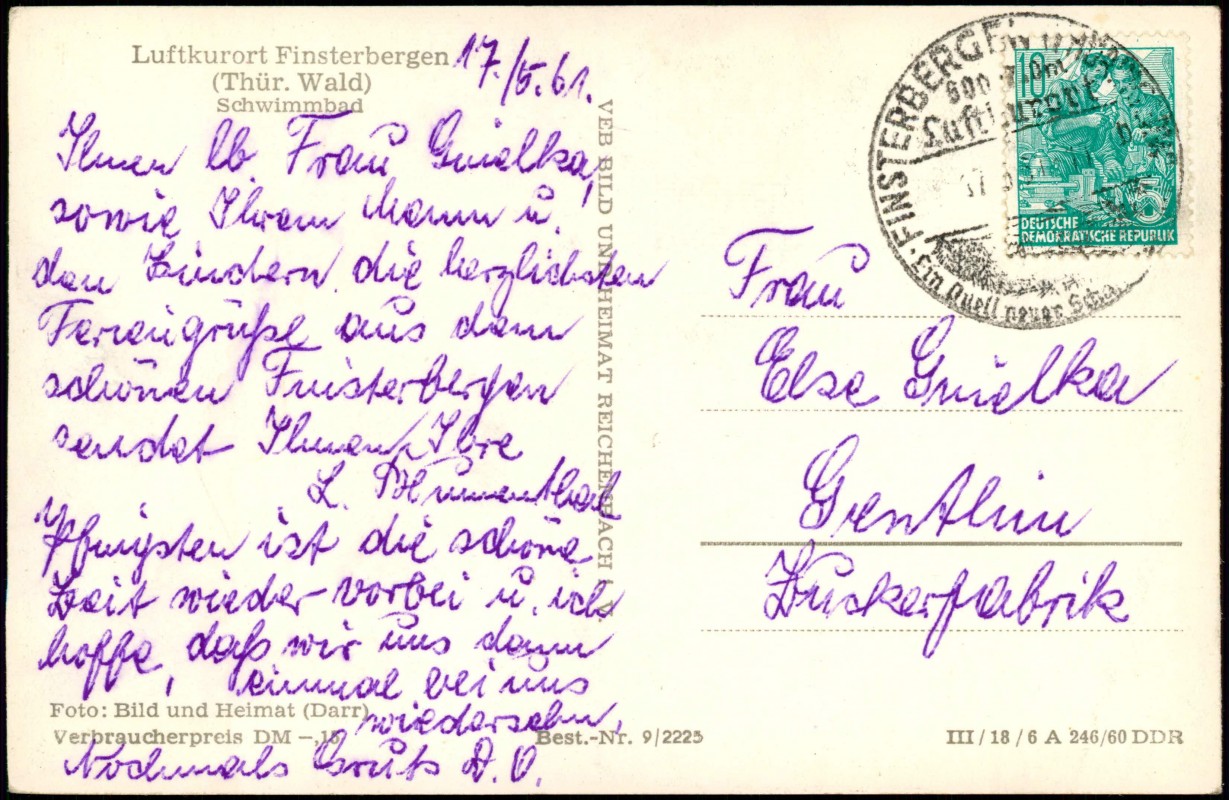 Luftkurort Finsterbergen
(Thür. Wald)
Schwimmbad
17./5.61.
Ihnen lb. Frau Gnielka,
sowie Ihrem Mann u.
den Kindern die herzlichsten
Feriengrüße aus dem
schönen Finsterbergen
sendet Ihnen Ihre
L. Blumenthal
Pfingsten ist die schöne
Zeit wieder vorbei u. ich
hoffe, daß wir uns dann
einmal bei uns
wiedersehn.
Nochmals Gruß D. O.
Foto: Bild und Heimat (Darr)
Verbraucherpreis DM –,15
Best.-Nr. 9/2225
VEB BILD UND HEIMAT REICHENBACH I. V.
FINSTERBERGEN
Luftkurort
Ein Quell neuer
10
5
DEUTSCHE
DEMOKRATISCHE REPUBLIK
Frau
Else Gnielka
Genthin
Zuckerfabrik
III/18/6 A 246/60 DDR